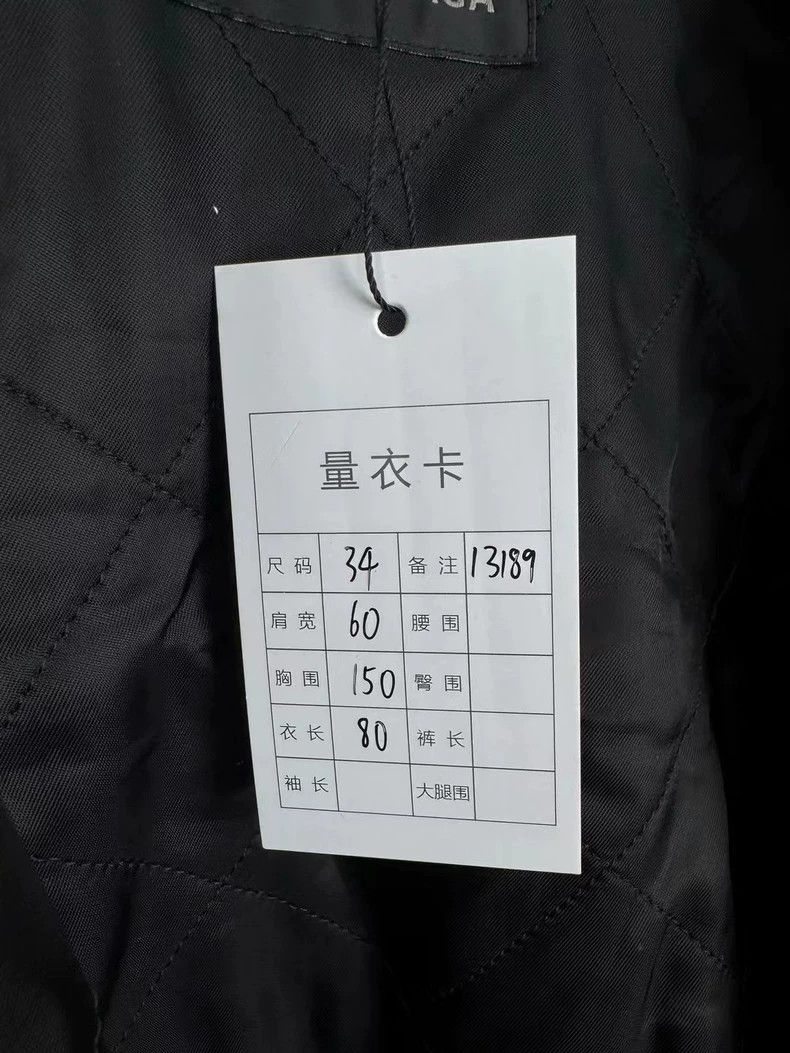 IGA
量衣卡
尺码 34 备注 13189
肩宽 60 腰围
胸围 150 臀围
衣长 80 裤长
袖长 大腿围